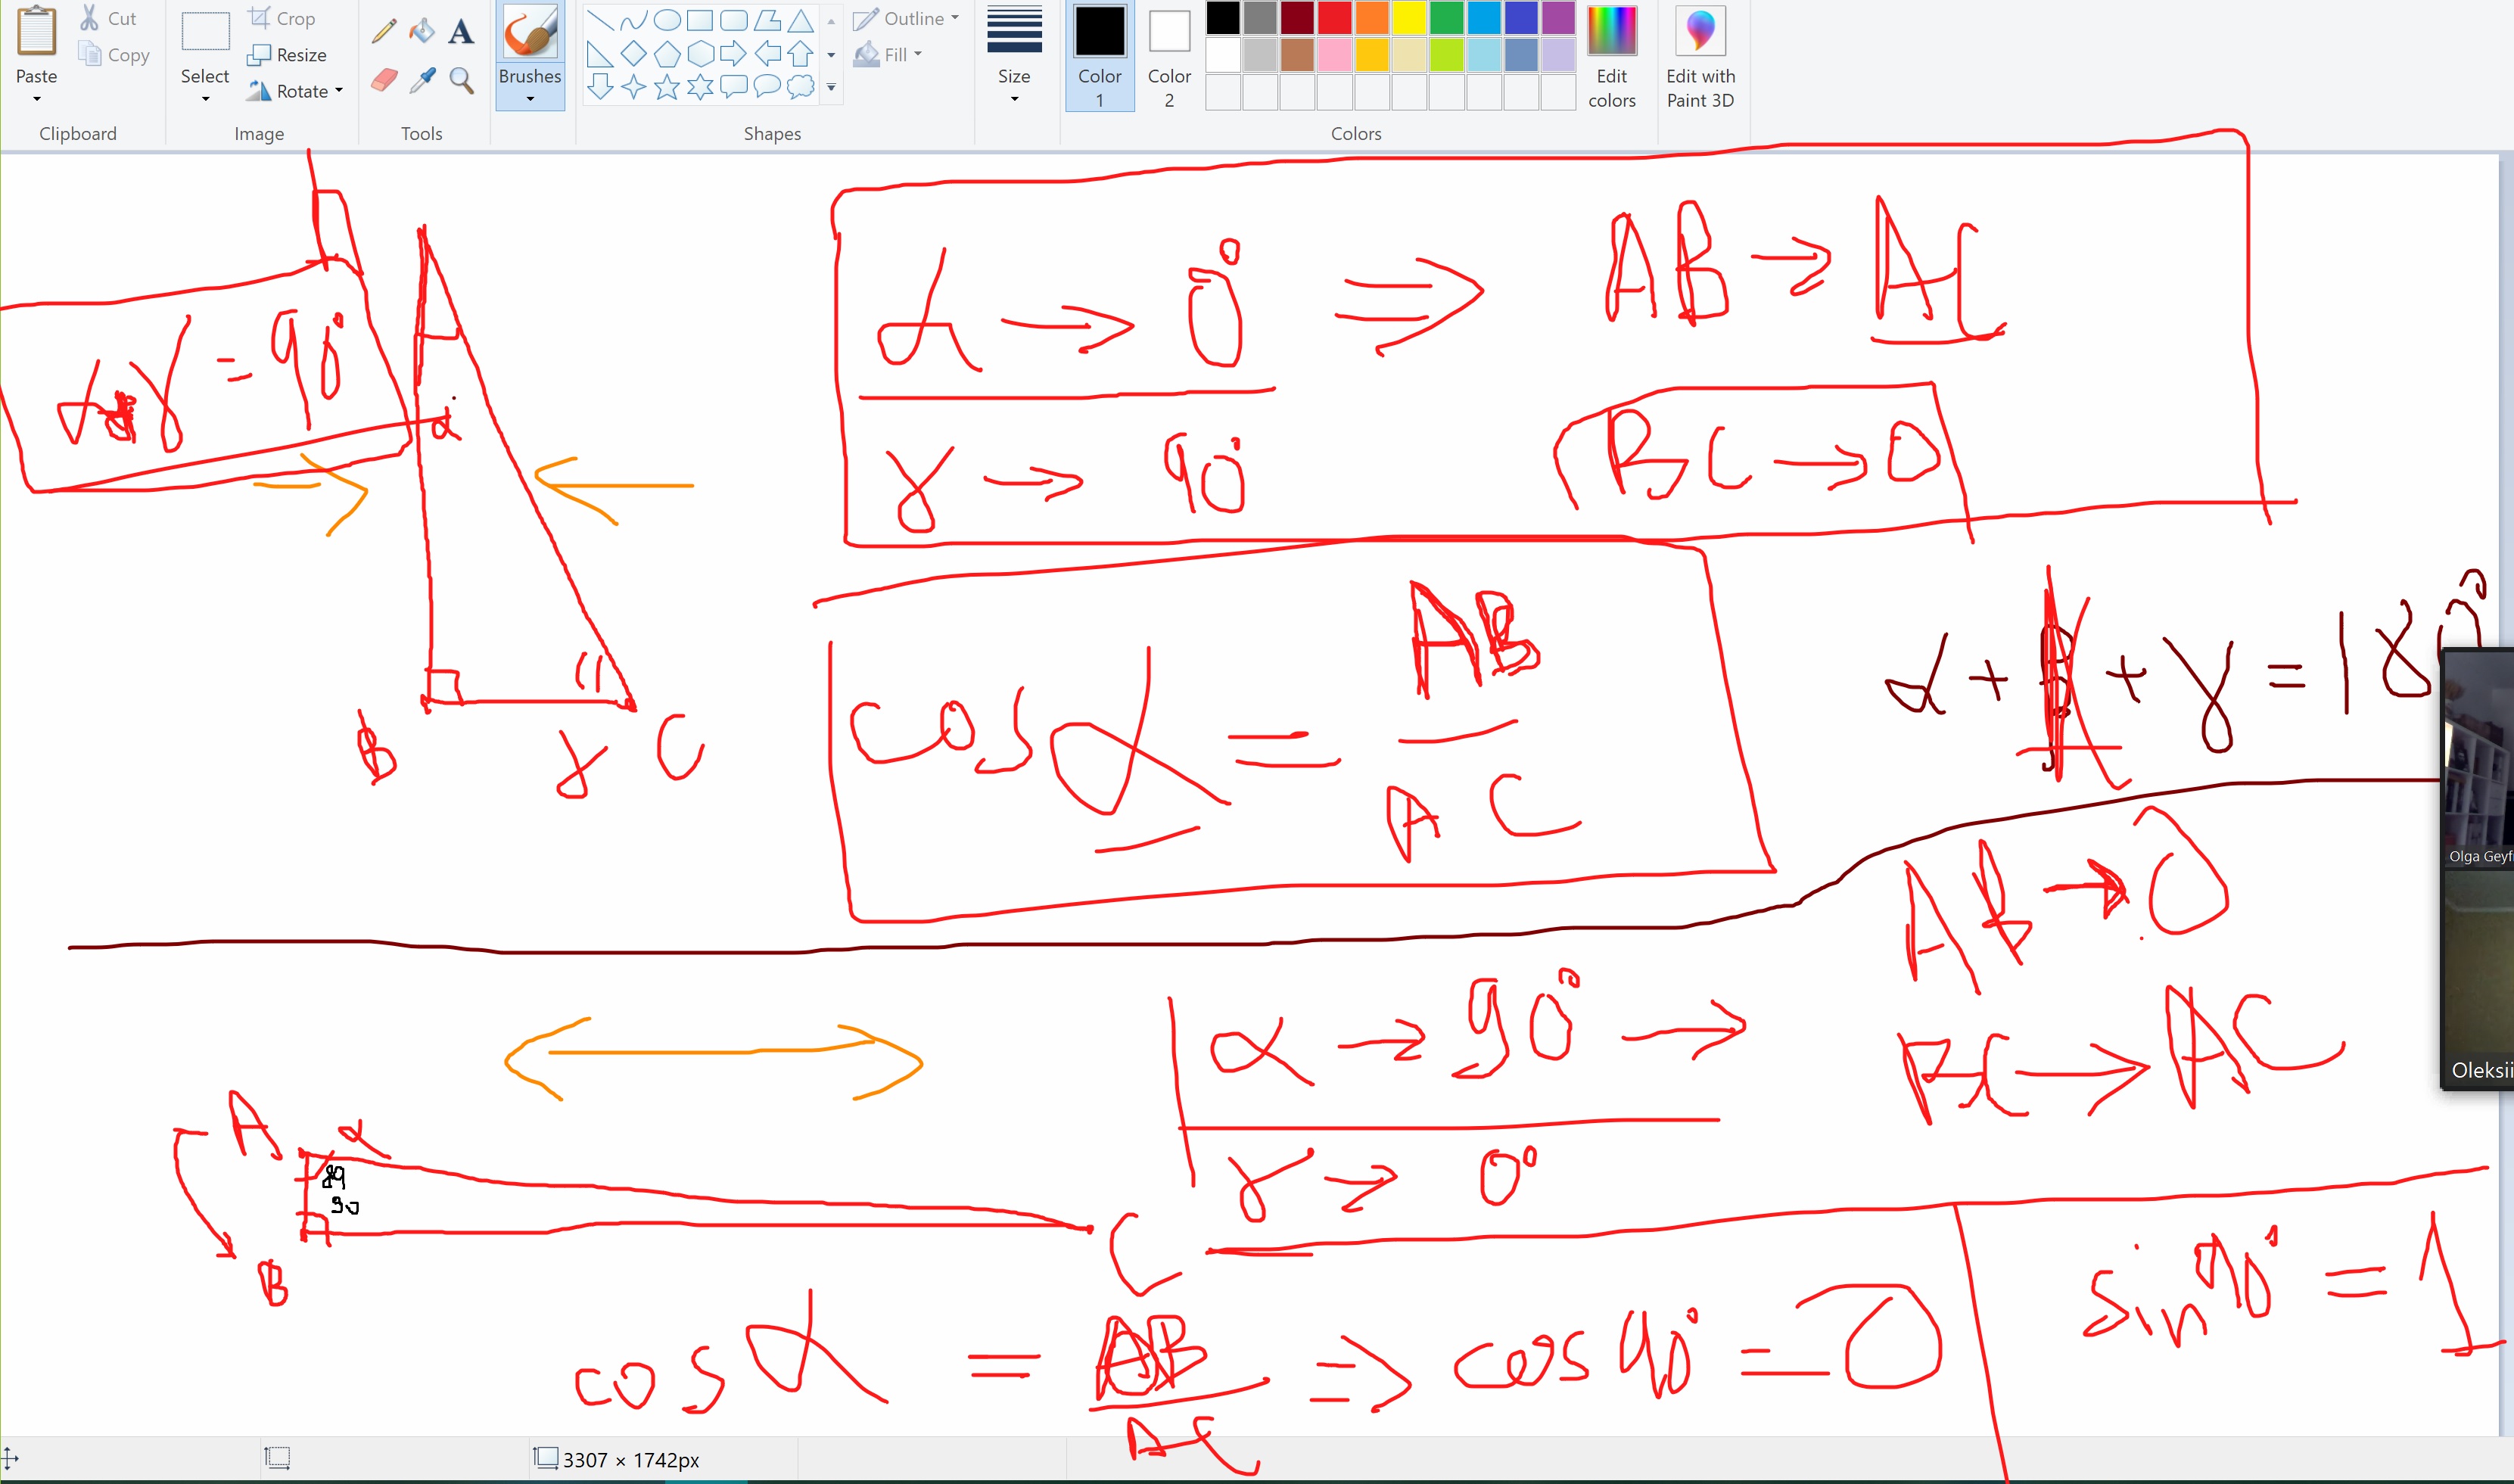 Paste
Cut
Copy
Clipboard
Select
Crop
Resize
Rotate
Image
A
Tools
Brushes
Shapes
Outline
Fill
Size
Color 1
Color 2
Colors
Edit colors
Edit with Paint 3D
α → 0° ⇒ AB → AC
γ → 90° BC → 0
γ = 90°
α
B γ C
cos α = AB / AC
α + β + γ = 180°
AB → 0
α → 90° → BC → AC
γ → 0°
A α
89
90
B
C
cos α = AB / AC ⇒ cos 90° = 0
sin 90° = 1
Olga Geyf
Oleksii
3307 × 1742px